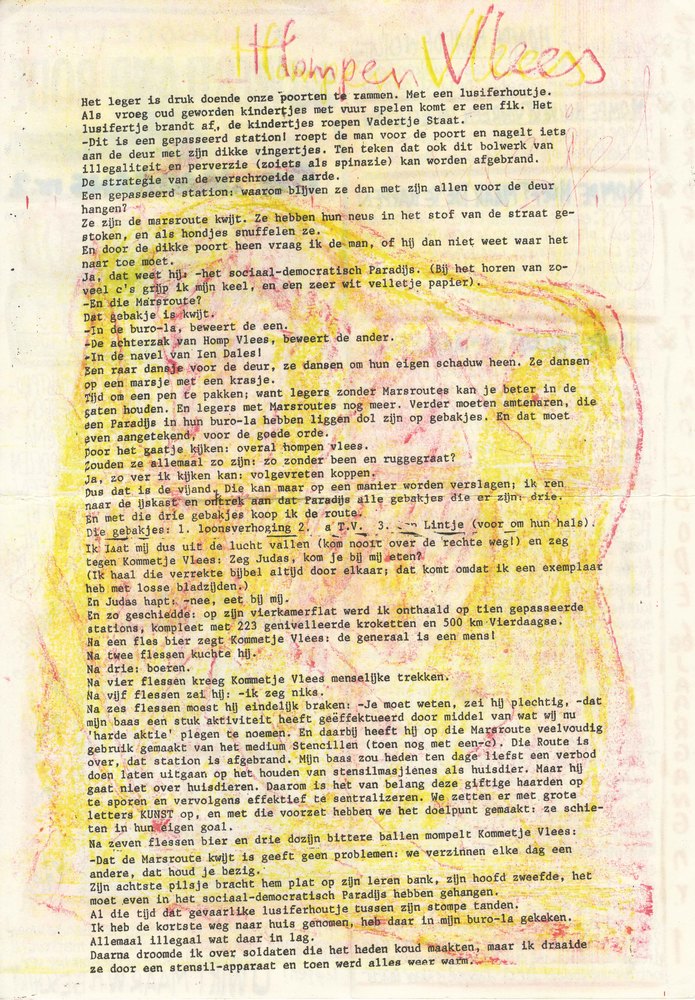 Hompen Vlees
Het leger is druk doende onze poorten te rammen. Met een lusiferhoutje.
Als vroeg oud geworden kindertjes met vuur spelen komt er een fik. Het
lusifertje brandt af, de kindertjes roepen Vadertje Staat.
-Dit is een gepasseerd station! roept de man voor de poort en nagelt iets
aan de deur met zijn dikke vingertjes. Ten teken dat ook dit bolwerk van
illegaliteit en perverzie (zoiets als spinazie) kan worden afgebrand.
De strategie van de verschroeide aarde.
Een gepasseerd station: waarom blijven ze dan met zijn allen voor de deur
hangen?
Ze zijn de marsroute kwijt. Ze hebben hun neus in het stof van de straat ge-
stoken, en als hondjes snuffelen ze.
En door de dikke poort heen vraag ik de man, of hij dan niet weet waar het
naar toe moet.
Ja, dat weet hij: -het sociaal-democratisch Paradijs. (Bij het horen van zo-
veel c's grijp ik mijn keel, en een zeer wit velletje papier).
-En die Marsroute?
Dat gebakje is kwijt.
-In de buro-la, beweert de een.
-De achterzak van Homp Vlees, beweert de ander.
-In de navel van Ien Dales!
Een raar dansje voor de deur, ze dansen om hun eigen schaduw heen. Ze dansen
op een marsje met een krasje.
Tijd om een pen te pakken; want legers zonder Marsroutes kan je beter in de
gaten houden. En legers met Marsroutes nog meer. Verder moeten amtenaren, die
een Paradijs in hun buro-la hebben liggen dol zijn op gebakjes. En dat moet
even aangetekend, voor de goede orde.
Door het gaatje kijken: overal hompen vlees.
Zouden ze allemaal zo zijn: zo zonder been en ruggegraat?
Ja, zo ver ik kijken kan: volgevreten koppen.
Dus dat is de vijand. Die kan maar op een manier worden verslagen; ik ren
naar de ijskast en ontrek aan dat Paradijs alle gebakjes die er zijn: drie.
En met die drie gebakjes koop ik de route.
Die gebakjes: 1. loonsverhoging 2. a T.V. 3. een Lintje (voor om hun hals).
Ik laat mij dus uit de lucht vallen (kom nooit over de rechte weg!) en zeg
tegen Kommetje Vlees: Zeg Judas, kom je bij mij eten?
(Ik haal die verrekte bijbel altijd door elkaar; dat komt omdat ik een exemplaar
heb met losse bladzijden.)
En Judas hapt: -nee, eet bij mij.
En zo geschiedde: op zijn vierkamerflat werd ik onthaald op tien gepasseerde
stations, kompleet met 223 genivelleerde kroketten en 500 km Vierdaagse.
Na een fles bier zegt Kommetje Vlees: de generaal is een mens!
Na twee flessen kuchte hij.
Na drie: boeren.
Na vier flessen kreeg Kommetje Vlees menselijke trekken.
Na vijf flessen zei hij: -ik zeg niks.
Na zes flessen moest hij eindelijk braken: -Je moet weten, zei hij plechtig, -dat
mijn baas een stuk aktiviteit heeft geëffektueerd door middel van wat wij nu
'harde aktie' plegen te noemen. En daarbij heeft hij op die Marsroute veelvoudig
gebruik gemaakt van het medium Stencillen (toen nog met een-c). Die Route is
over, dat station is afgebrand. Mijn baas zou heden ten dage liefst een verbod
doen laten uitgaan op het houden van stensilmasjienes als huisdier. Maar hij
gaat niet over huisdieren. Daarom is het van belang deze giftige haarden op
te sporen en vervolgens effektief te sentralizeren. We zetten er met grote
letters KUNST op, en met die voorzet hebben we het doelpunt gemaakt: ze schie-
ten in hun eigen goal.
Na zeven flessen bier en drie dozijn bittere ballen mompelt Kommetje Vlees:
-Dat de Marsroute kwijt is geeft geen problemen: we verzinnen elke dag een
andere, dat houd je bezig.
Zijn achtste pilsje bracht hem plat op zijn leren bank, zijn hoofd zweefde, het
moet even in het sociaal-democratisch Paradijs hebben gehangen.
Al die tijd dat gevaarlijke lusiferhoutje tussen zijn stompe tanden.
Ik heb de kortste weg naar huis genomen, heb daar in mijn buro-la gekeken.
Allemaal illegaal wat daar in lag.
Daarna droomde ik over soldaten die het heden koud maakten, maar ik draaide
ze door een stensil-apparaat en toen werd alles weer warm.